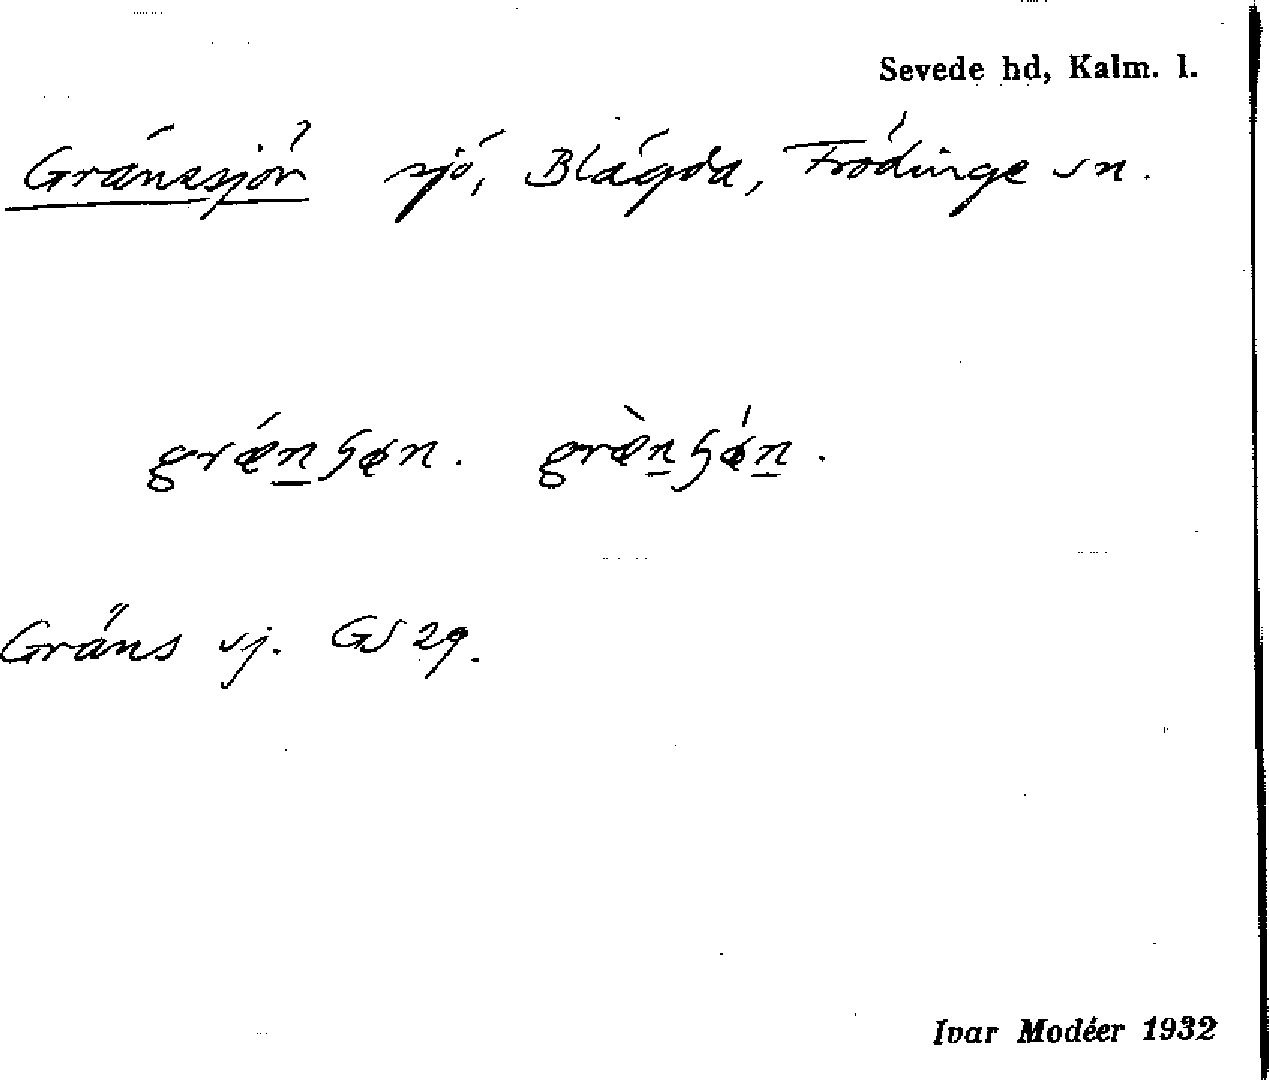 Sevede hd, Kalm. l.
Gränssjön sjö, Blägda, Frödinge sn.
Gräns sj. GS 29.
Ivar Modéer 1932